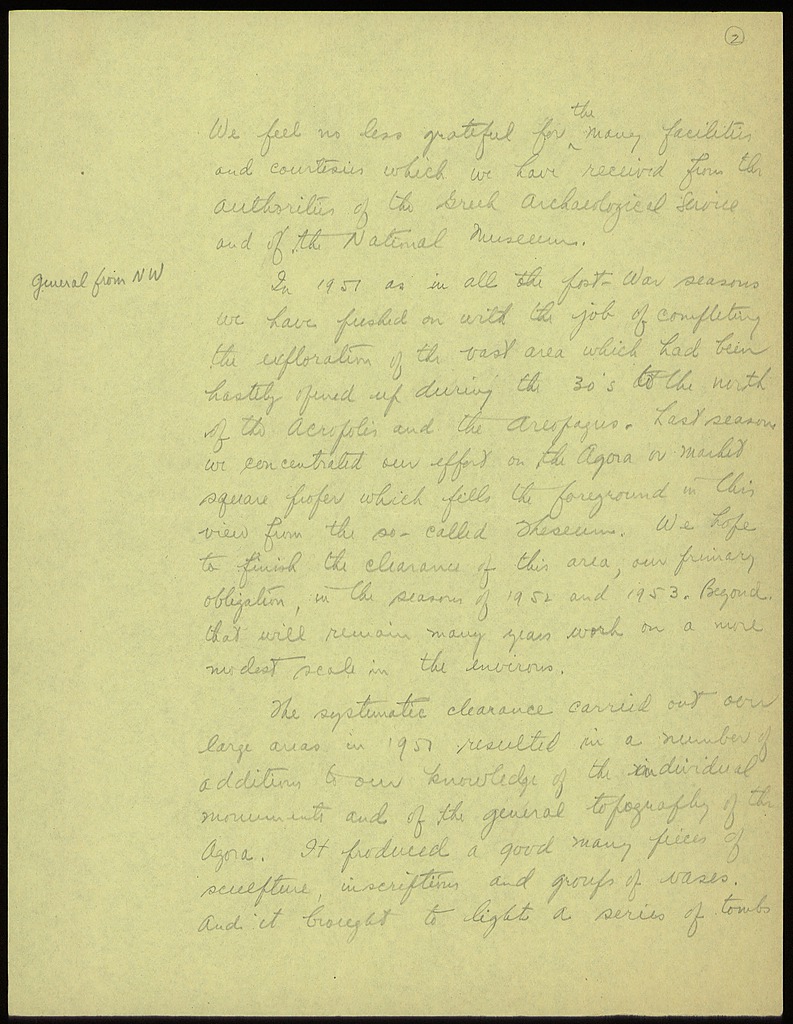 2
We feel no less grateful for the many facilities
and courtesies which we have received from the
authorities of the Greek Archaeological Service
and of the National Museum.
General from NW
In 1951 as in all the post-War seasons
we have pushed on with the job of completing
the exploration of the vast area which had been
hastily opened up during the 30's to the north
of the Acropolis and the Areopagus. Last season
we concentrated our effort on the Agora or market
square proper which fills the foreground in this
view from the so-called Theseum. We hope
to finish the clearance of this area, our primary
obligation, in the seasons of 1952 and 1953. Beyond
that will remain many years work on a more
modest scale in the environs.
The systematic clearance carried out over
large areas in 1951 resulted in a number of
additions to our knowledge of the individual
monuments and of the general topography of the
Agora. It produced a good many pieces of
sculpture, inscriptions and groups of vases.
And it brought to light a series of tombs